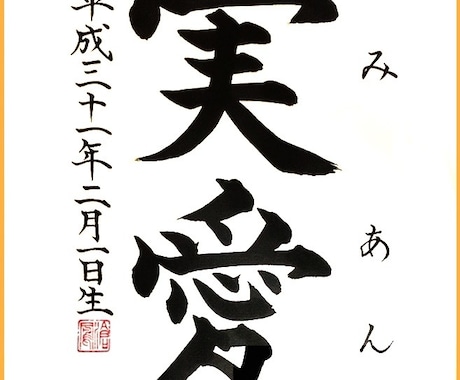 みあん
実愛
平成三十一年二月一日生